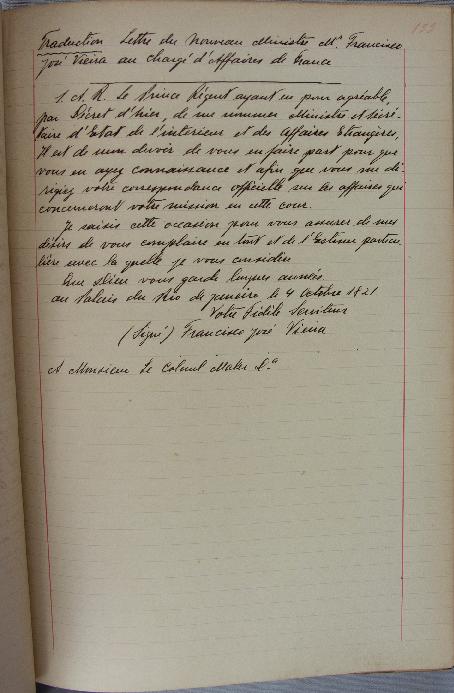 133
Traduction Lettre du Nouveau Ministre Mr. Francisco
José Vieira au chargé d'Affaires de France
S. A. R. Le Prince Régent ayant eu pour agréable,
par Décret d'hier, de me nommer Ministre et Secré-
taire d'Etat de l'intérieur et des Affaires Etrangères,
Il est de mon devoir de vous en faire part pour que
vous en ayez connaissance et afin que vous me di-
rigiez votre correspondance officielle sur les affaires qui
concerneront votre mission en cette cour.
Je saisis cette occasion pour vous assurer de mes
désirs de vous complaire en tout et de l'Estime particu-
lière avec la quelle je vous considère
Que Dieu vous garde longues années.
au Palais du Rio de janeiro le 4 Octobre 1821
Votre Fidèle Serviteur
(Signé) Francisco José Vieira
A Monsieur Le Colonel Maler &a